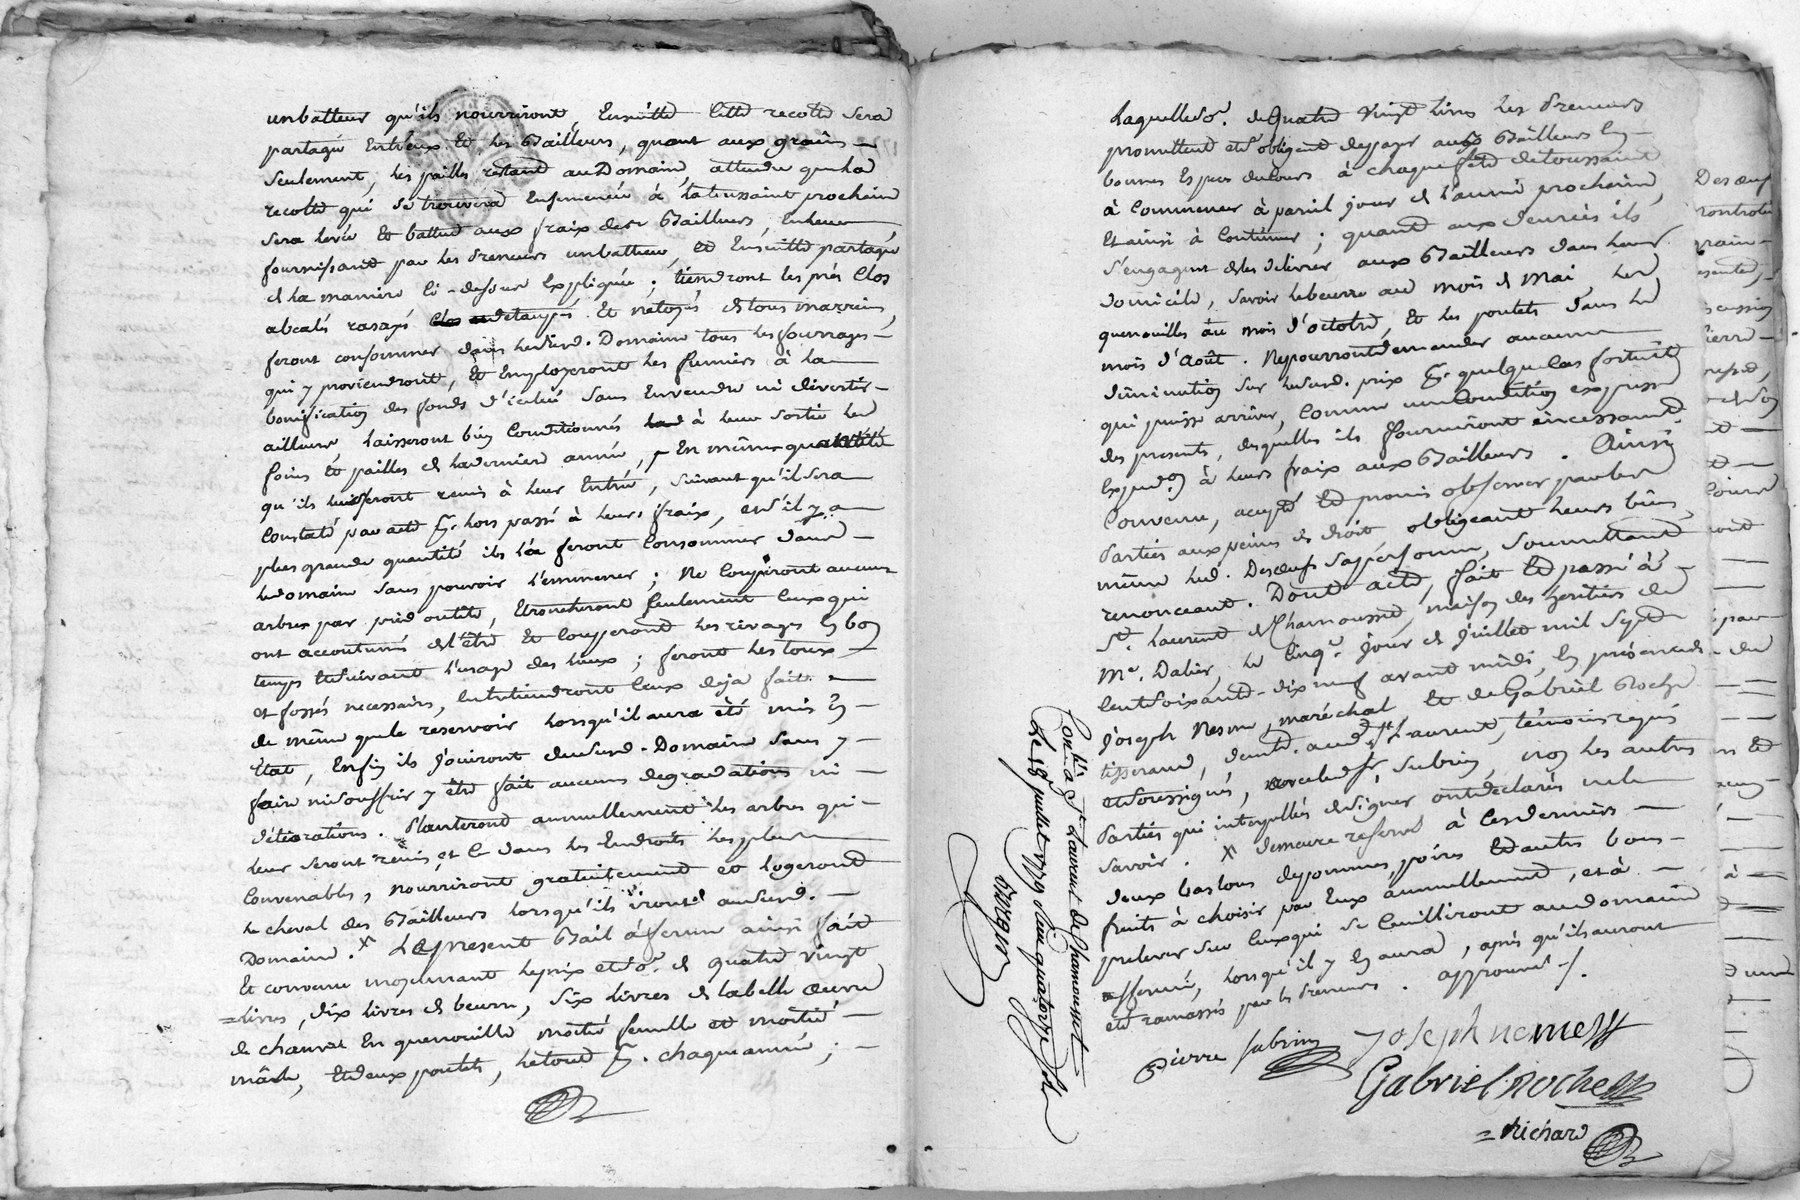 un batteur qu'ils nourriront, Ensuitte cette recolte sera
partagée Entr'eux Et les Bailleurs, quant aux grains
seulement, les pailles restant au Domaine, attendu que la
recolte qui se trouvera Ensemencée à la toussaint prochaine
sera levée Et battue aux fraix des Bailleurs, En leur
fournissant par les Preneurs un batteur, Et Ensuitte partagée
de la maniere ci-dessus Expliquée; tiendront les prés Clos
rasagés et netoyés de tous marrains,
feront consommer dans led. Domaine tous les fourrages
qui y proviendront, Et Employeront les fumiers à la
bonification des fonds d'icelui sans En vendre ni divertir
ailleurs, laisseront bien Conditionnés à leur sortie les
foins Et pailles de la derniere année, En même quantité
qu'ils leur seront remis à leur Entrée, suivant qu'il sera
Constaté par acte hors passé à leurs fraix, et s'il y a
plus grande quantité ils la feront Consommer dans
le domaine sans pouvoir l'emmener; Ne Couperont aucuns
arbres par pied, Etroncheront seulement Ceux qui
ont accoutumés de l'être Et Couperont les rivages En bon
temps Et suivant l'usage des lieux; feront les
et fossés necessaires, Entretiendront Ceux deja faits
de même que le reservoir lorsqu'il aura été mis En
Etat, Enfin ils jouiront dud. Domaine sans y
faire ni souffrir y être fait aucuns degradations ni
détériorations. Planteront annuellement les arbres qui
leur seront remis et ce dans les Endroits les plus
Convenables, nourriront gratuitement et logeront
le cheval des Bailleurs lorsqu'ils iront aud.
Domaine. x Le present Bail à ferme ainsi fait
Et convenu moyennant le prix et so.e de quatre vingt
livres, dix livres de beurre, six livres de la belle œuvre
de chanvre En quenouille moitié femelle et moitié
mâsle, Et deux poulets, le tout chaque année;
laquelle so.e de quatre vingt livres les Preneurs
promettent et s'obligent de payer auxd. Bailleurs En
bonnes Especes du Cours à chaque fête de toussaint
à Commencer à pareil jour de l'année prochaine,
Et ainsi à Continuer; quant aux denrées ils
s'engagent de les delivrer aux Bailleurs dans leur
domicile, savoir le beurre au mois de Mai, les
quenouilles au mois d'octobre, Et les poulets dans le
mois d'Août. Ne pourront demander aucune
diminution sur led. prix quelque cas fortuit
qui puisse arriver, Comme une Condition expresse
des presentes, desquelles ils fourniront incessament
Expedon à leurs fraix aux Bailleurs. Ainsi
Convenu, accepté Et promis observer par les
Parties aux peines de droit obligeant leurs biens,
même led. Desœuf sa personne, soumettant
renonceant. Dont acte, fait Et passé à
St. Laurent de Chamousset, maison des heritiers de
Me. Dalier, le Cinqe. jour de juillet mil sept
Cent soixante-dix neuf avant midi, En présence de
joseph Nesme, maréchal Et de Gabriel Roche
tisserand, demt. aud. St. Laurent, témoins requis
et soussignés, avec led. Subrin, non les autres
Parties qui interpellés de signer ont déclarés ne le
savoir. x demeure reservé à Ces derniers
deux bastous de pommes, poires Et autres bons
fruits à choisir par Eux annuellement, et à
prelever sur Ceux qui se Cueilliront au domaine
affermé, lorsqu'il y En aura, après qu'ils auront
été ramassés par les Preneurs. approuvé
Pierre subrin
Joseph nemes
Gabriel Roche
Richard
Conllé à St Laurent de Chamousset
le 18 juillet 1779 Reçu quatorze sols